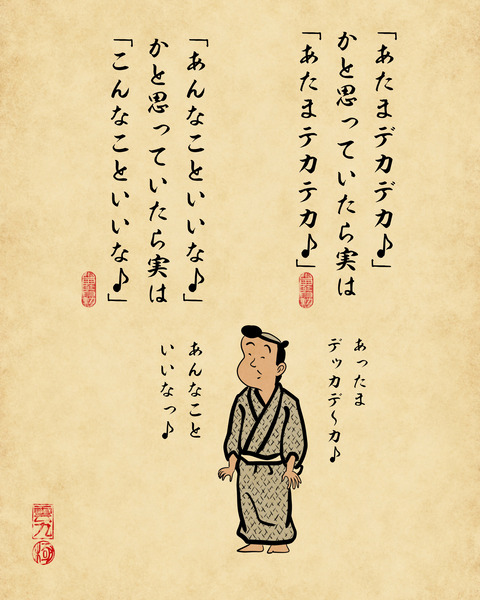 「あたまデカデカ♪」
かと思っていたら実は
「あたまテカテカ♪」
「あんなこといいな♪」
かと思っていたら実は
「こんなこといいな♪」
あったま
デッカデ〜カ♪
あんなこと
いいなっ♪